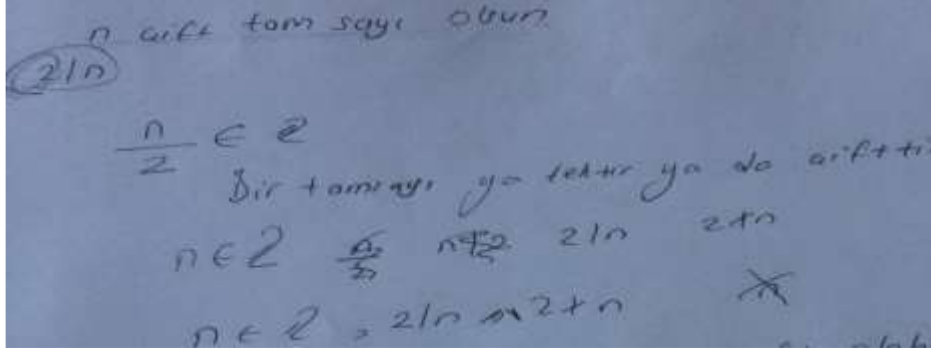 n çift tam sayı olsun
2|n
n/2 ∈ Z
Bir tamsayı ya tektir ya da çiftti
n∈Z 2|n 2∤n
n∈Z, 2|n ∧ 2∤n